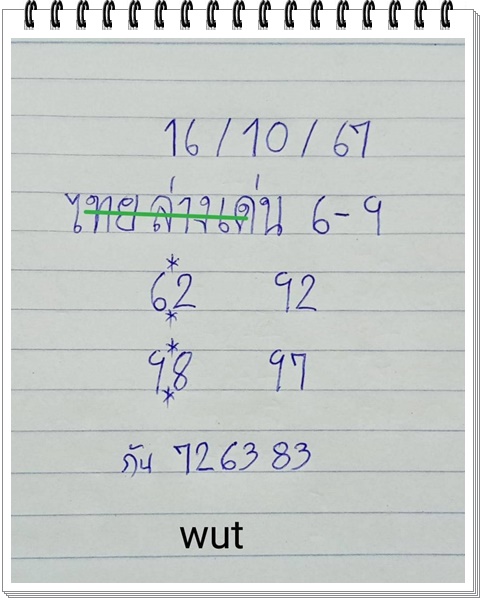 16/10/67
ไทยล่างเด่น 6-9
62 92
98 97
กัน 72 63 83
wut